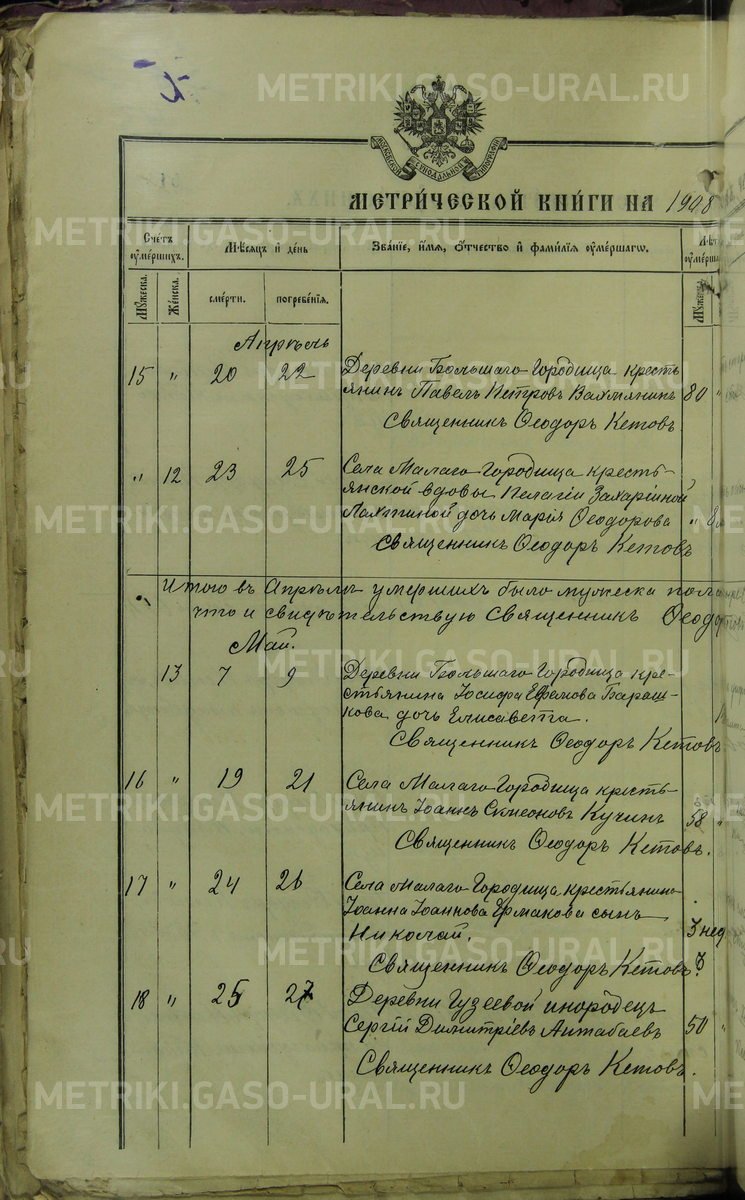 METRIKI.GASO-URAL.RU
МОСКОВСКОЙ СѴНОДАЛЬНОЙ ТИПОГРАФІИ
МЕТРИ́ЧЕСКОЙ КНИ́ГИ НА 1908
Сче́тъ ᲂу҆ме́ршихъ.
Мѣ́сѧцъ и҆ де́нь
Зва́нїе, и҆́мѧ, ѻ҆́тчество и҆ фами́лїѧ ᲂу҆ме́ршагѡ.
Лѣт
ᲂу҆ме́рша
Мꙋ́жеска.
Же́нска.
сме́рти.
погребе́нїѧ.
Мꙋ́жеска
Апрѣль
15 " 20 22 Деревни Большаго Городища кресть
янинъ Павелъ Петровъ Вахмянинъ 80 "
Священникъ Ѳеодоръ Кетовъ
" 12 23 25 Села Малаго Городища кресть-
янской вдовы Пелагіи Захаріиной
дочь Марія Ѳеодорова "
Священникъ Ѳеодоръ Кетовъ
Итого въ Апрѣлѣ умершихъ было мужеска пола
что и свидѣтельствую Священникъ Ѳеодо
Май.
13 7 9 Деревни Большаго Городища кре-
стьянина Іосифа Ефимова Бараш-
кова дочь Елисавета.
Священникъ Ѳеодоръ Кетовъ
16 " 19 21 Села Малаго Городища кресть-
янинъ Іоаннъ Симеоновъ Кучинъ 58 "
Священникъ Ѳеодоръ Кетовъ.
17 " 24 26 Села Малаго Городища крестьянина
Іоанна Іоаннова Ермакова сынъ
Николай. 3 нед
Священникъ Ѳеодоръ Кетовъ
18 " 25 27 Деревни Гузеевой инородецъ
Сергій Димитріевъ Антабаевъ 50 "
Священникъ Ѳеодоръ Кетовъ.